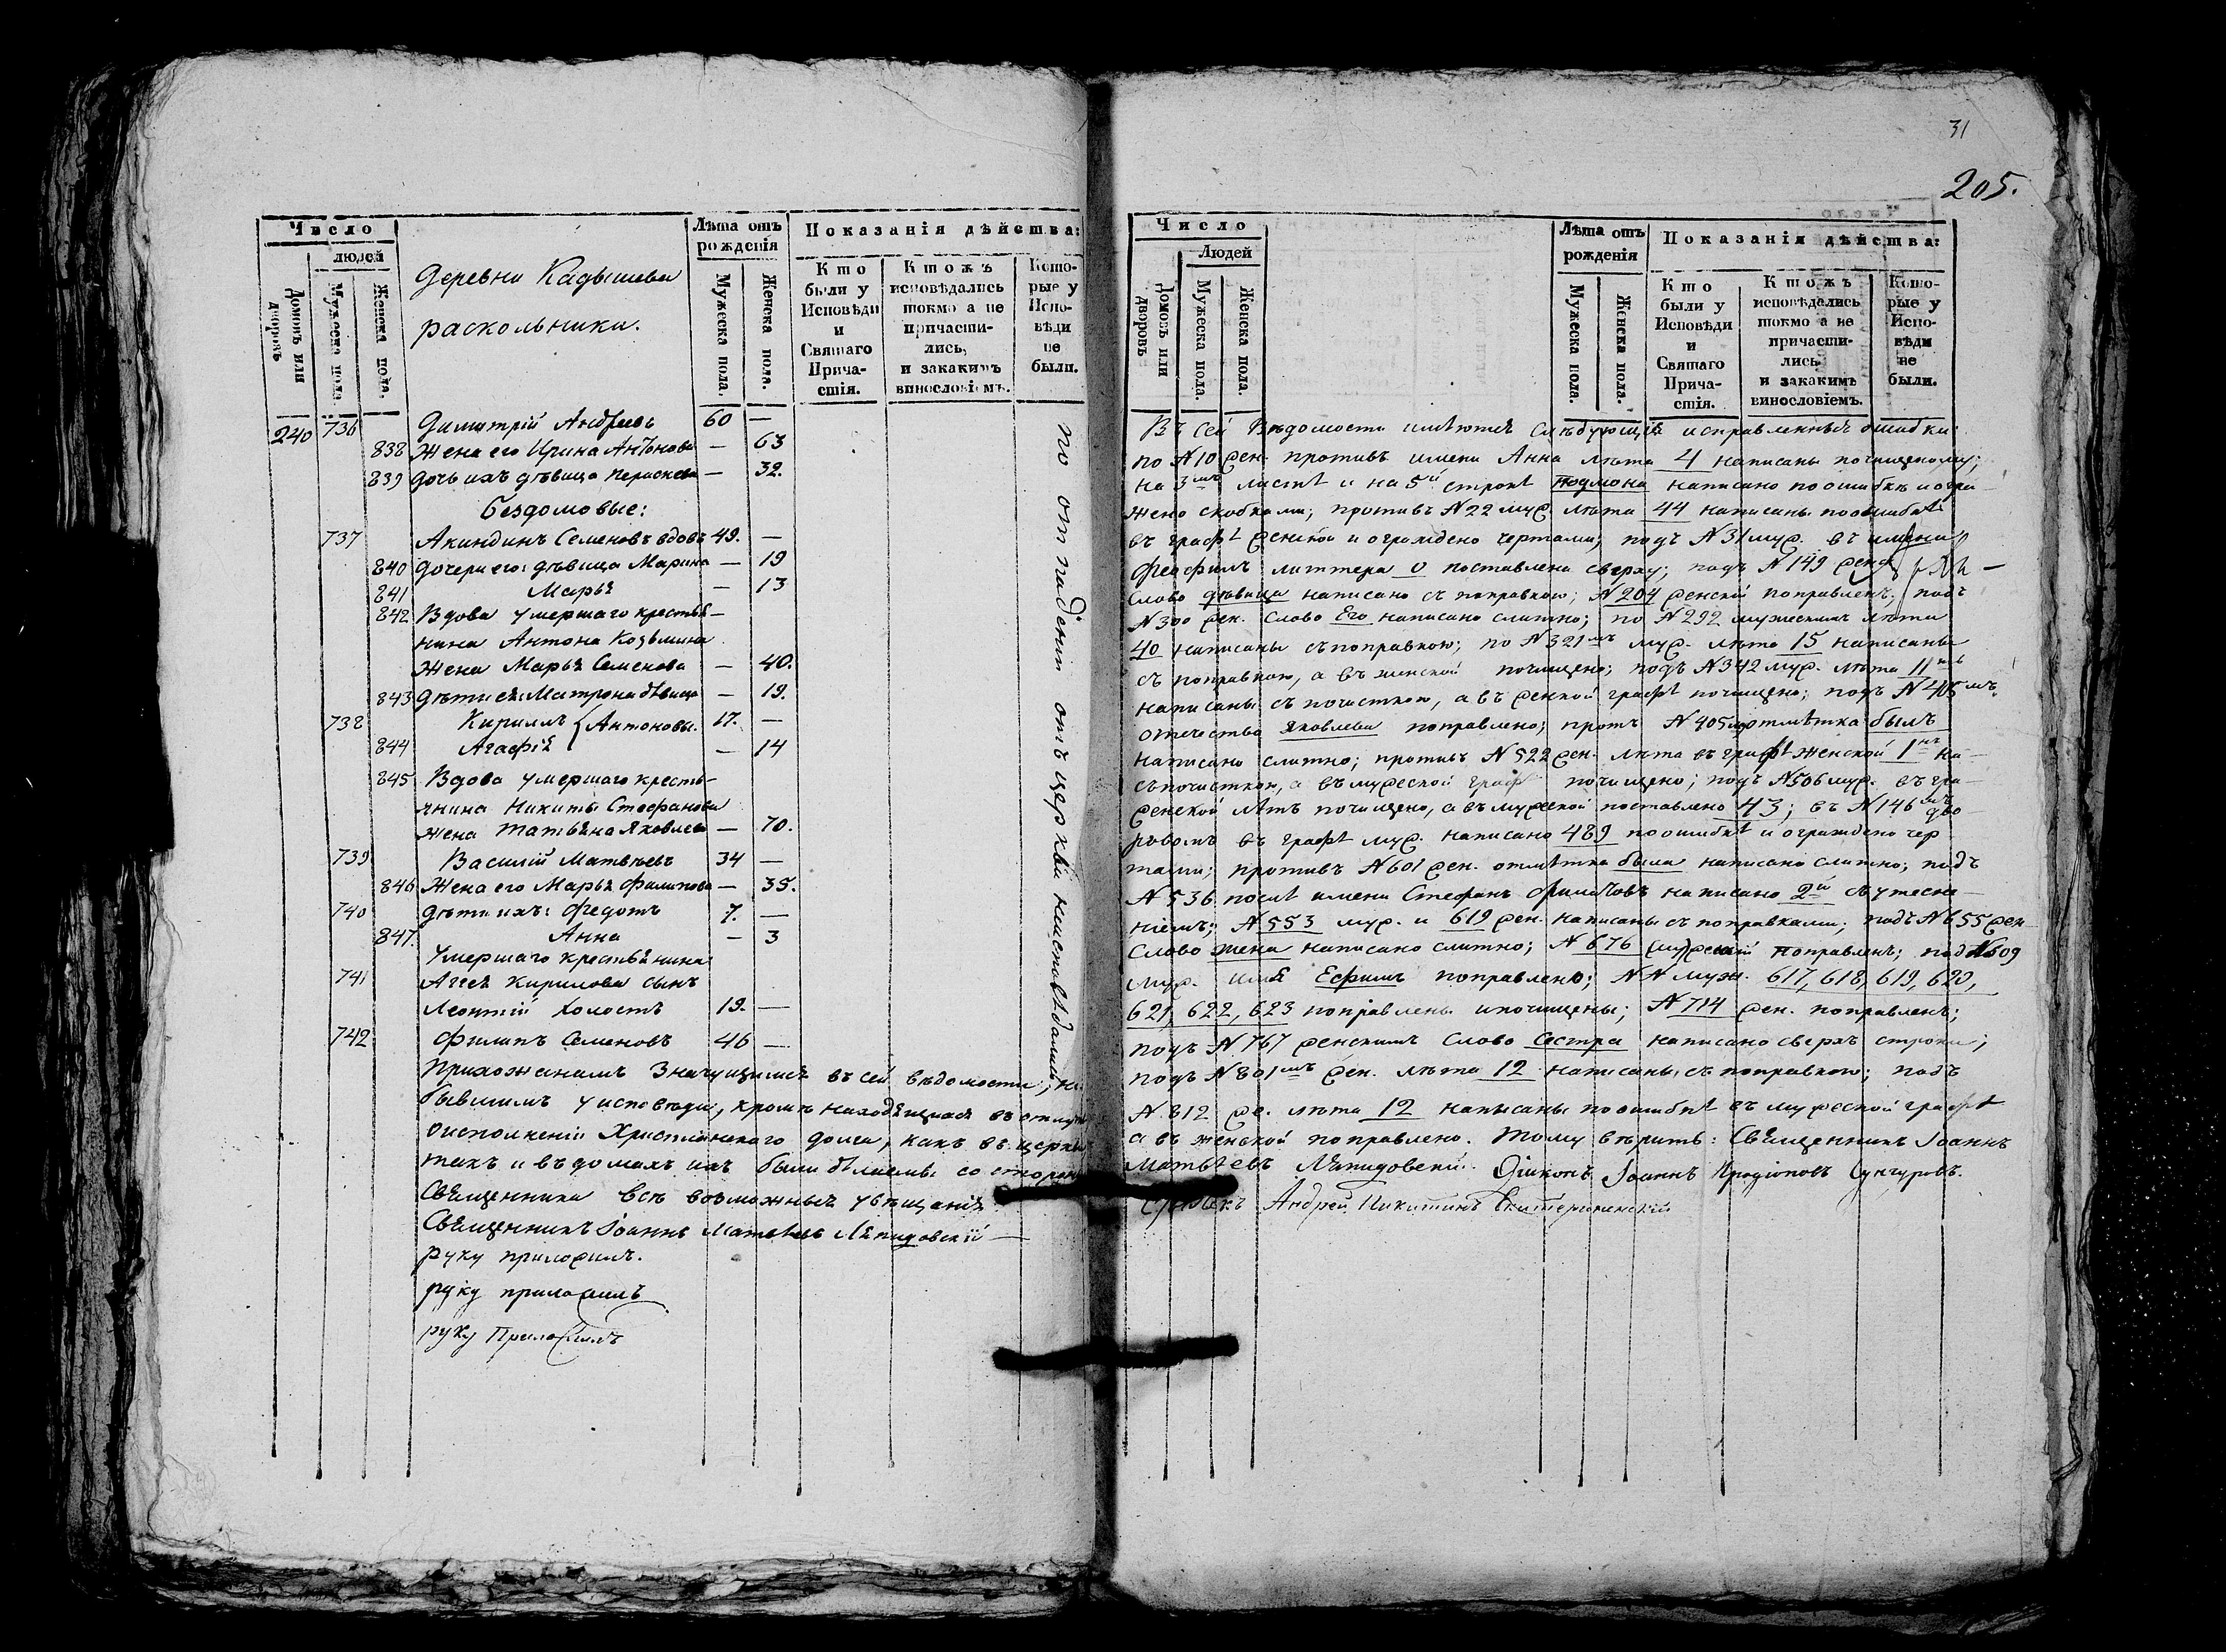 Число
людей
Домовъ или дворовъ
Мужеска пола.
Женска пола.
Деревни Кадышева
раскольники.
Лѣта отъ рожденія
Мужеска пола.
Женска пола.
Показанія дѣйства:
Кто были у Исповѣди и Святаго Причастія.
Ктожъ исповѣдались токмо а не причастились, и закакимъ винословіемъ.
Которые у Исповѣди не были.
240 736 Димитрій Андреевъ 60 —
838 Жена его Ирина Антонова — 63
839 Дочь ихъ дѣвица Параскева — 32.
Бездомовые:
737 Акиндинъ Семеновъ вдовъ 49. —
840 Дочери его: дѣвица Марина — 19
841 Марья — 13
842 Вдова умершаго крестья—
нина Антона Козьмина
жена Марья Семенова — 40.
843 Дѣти ея: Матрона дѣвица — 19.
738 Кириллъ { Антоновы. 17. —
844 Агафія — 14
845 Вдова умершаго кресть—
янина Никиты Стефанова
жена Татьяна Яковлева — 70.
739 Василій Матвѣевъ 34 —
846 Жена его Марья Филипова — 35.
740 Дѣти ихъ: Федотъ 7. —
847. Анна — 3
Умершаго крестьянина
741 Аггея Кирилова сынъ
Леонтій холостъ 19. —
742 Филипъ Семеновъ 46 —
по отпаденіи отъ церкви неисповѣдались
Прихожанамъ значущимся въ сей вѣдомости, не
бывшимъ у исповѣди, кромѣ находящихся въ отлуч
оисполненіи Христіанскаго долга, какъ въ церкви
такъ и въ домахъ ихъ были дѣлаемы со стороны
Священника всѣ возможныя увѣщанія
Священникъ Іоаннъ Матвѣевъ Ляпидовскій —
руку приложилъ.
руку приложилъ
руку Приложилъ
31
205.
Число
Людей
Домовъ или дворовъ
Мужеска пола.
Женска пола.
Лѣта отъ рожденія
Мужеска пола.
Женска пола.
Показанія дѣйства:
Кто были у Исповѣди и Святаго Причастія.
Ктожъ исповѣдались токмо а не причастились и закакимъ винословіемъ.
Которые у Исповѣди не были.
Въ сей Вѣдомости имѣются слѣдующія исправленныя ошибки:
по N 10 жен. противъ имени Анна лѣта 4 написаны почищеному;
на 3мъ листѣ и на 5й строкѣ написано поошибкѣ и огра—
жено скобками; противъ N 22 муж. лѣта 44 написаны поошибкѣ
въ графѣ женской и ограждено чертами; подъ N 31 муж. въ имени
Феофилъ литтера о поставлена сверху; подъ N 149 жен.
слово дѣвица написано съ поправкою; N 204 женской поправленъ; подъ
N 300 жен. слово Его написано слитно; по N 292 мужескимъ лѣта
40 написаны съ поправкою; по N 321мъ муж. лѣта 15 написаны
съ поправкою, а въ женской почищено; подъ N 342 муж. лѣта 11ть
написаны съ почисткою, а въ женской графѣ почищено; подъ N 405мъ
отечество Яковлева поправлено; протъ N 405 отмѣтка былъ
написано слитно; противъ N 522 жен. лѣта въ графѣ женской 1нъ на—
съ почисткою, а въ мужеской граф почищено; подъ N 506 муж. въ гра—
женской лѣтъ почищено, а въ мужеской поставлено 43; въ N 146мъ дво
ровомъ въ графѣ муж. написано 489 поошибкѣ и ограждено чер
тами; противъ N 601 жен. отмѣтка была написано слитно; подъ
N 536 послѣ имени Стефанъ Филиповъ написано 2й съ утесне—
ніемъ; N 553 муж. и 619 жен. написаны съ поправками; подъ N 655 жен
слово жена написано слитно; N 676 поправленъ; под N 609
муж. имя Ефимъ поправлено; NN муж. 617, 618, 619, 620,
621, 622, 623 поправлены ипочищены; N 714 жен. поправленъ;
подъ N 767 женскимъ слово сестра написано сверхъ строки;
подъ N 801мъ жен. лѣта 12 написаны съ поправкою; подъ
N. 812 же. лѣта 12 написаны поошибкѣ въ мужеской графѣ
а въ женской поправлено. Тому вѣрить: Священникъ Іоаннъ
Матвѣевъ Ляпидовскій. Діаконъ Іоаннъ Иродіоновъ Сунгуровъ.
Андрей Никитинъ Екатерининскій